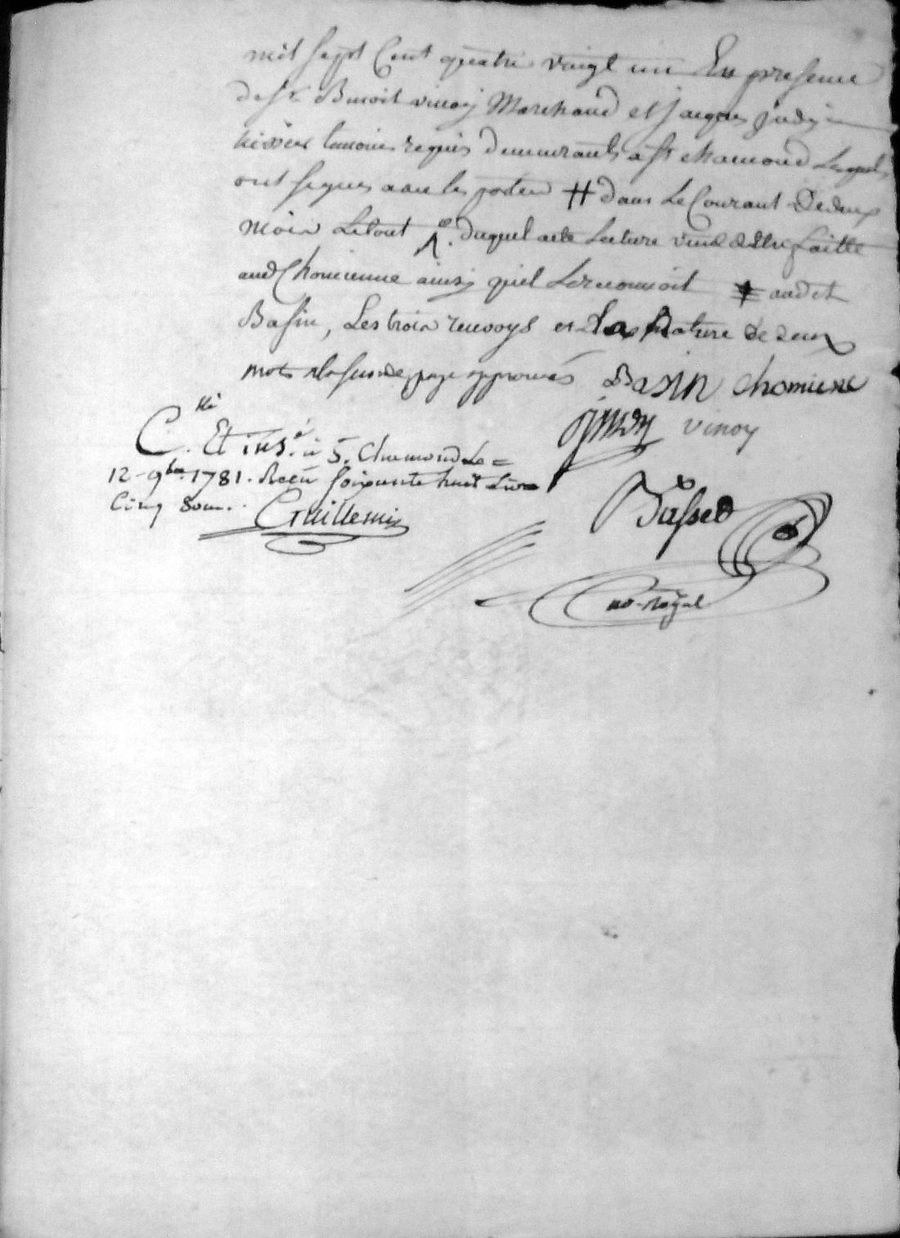 mil sept Cent quatre vingt un En presence
de Sr. Benoit vinoy Marchand et jacques
temoins requis demeurants a St chamond Lesquels
ont signes avec les parties # dans Le Courant De deux
Mois Letout . duquel acte Lecture vient d'Etre faitte
aud Chomienne ainsy quil Lereconnoit audit
Basin, Les trois renvoys et La Rature de deux
mots alaseconde page approuvés Basin chomiene
vinoy
C.llé Et ins.é à S. Chamond Le =
12 9bre 1781. Recu soixante huit Livres
Cinq Sous. Guillemin
Basset
no. Royal